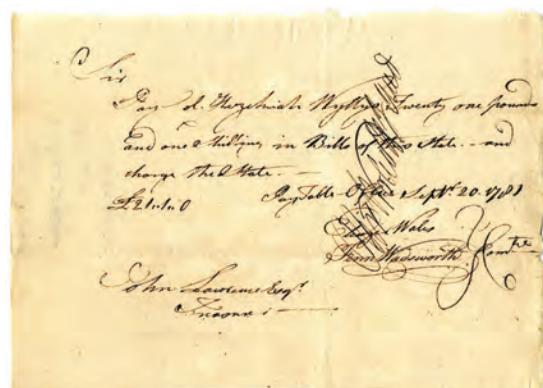 Sir
Pay Col. Hezekiah Wyllys Twenty one pounds
and one shilling in Bills of this State. and
charge the State.
£21.1.0 Pay Table Office Septr. 20. 1781
Wales
Fenn Wadsworth } Comtee
John Lawrence Esqr.
Treasurer